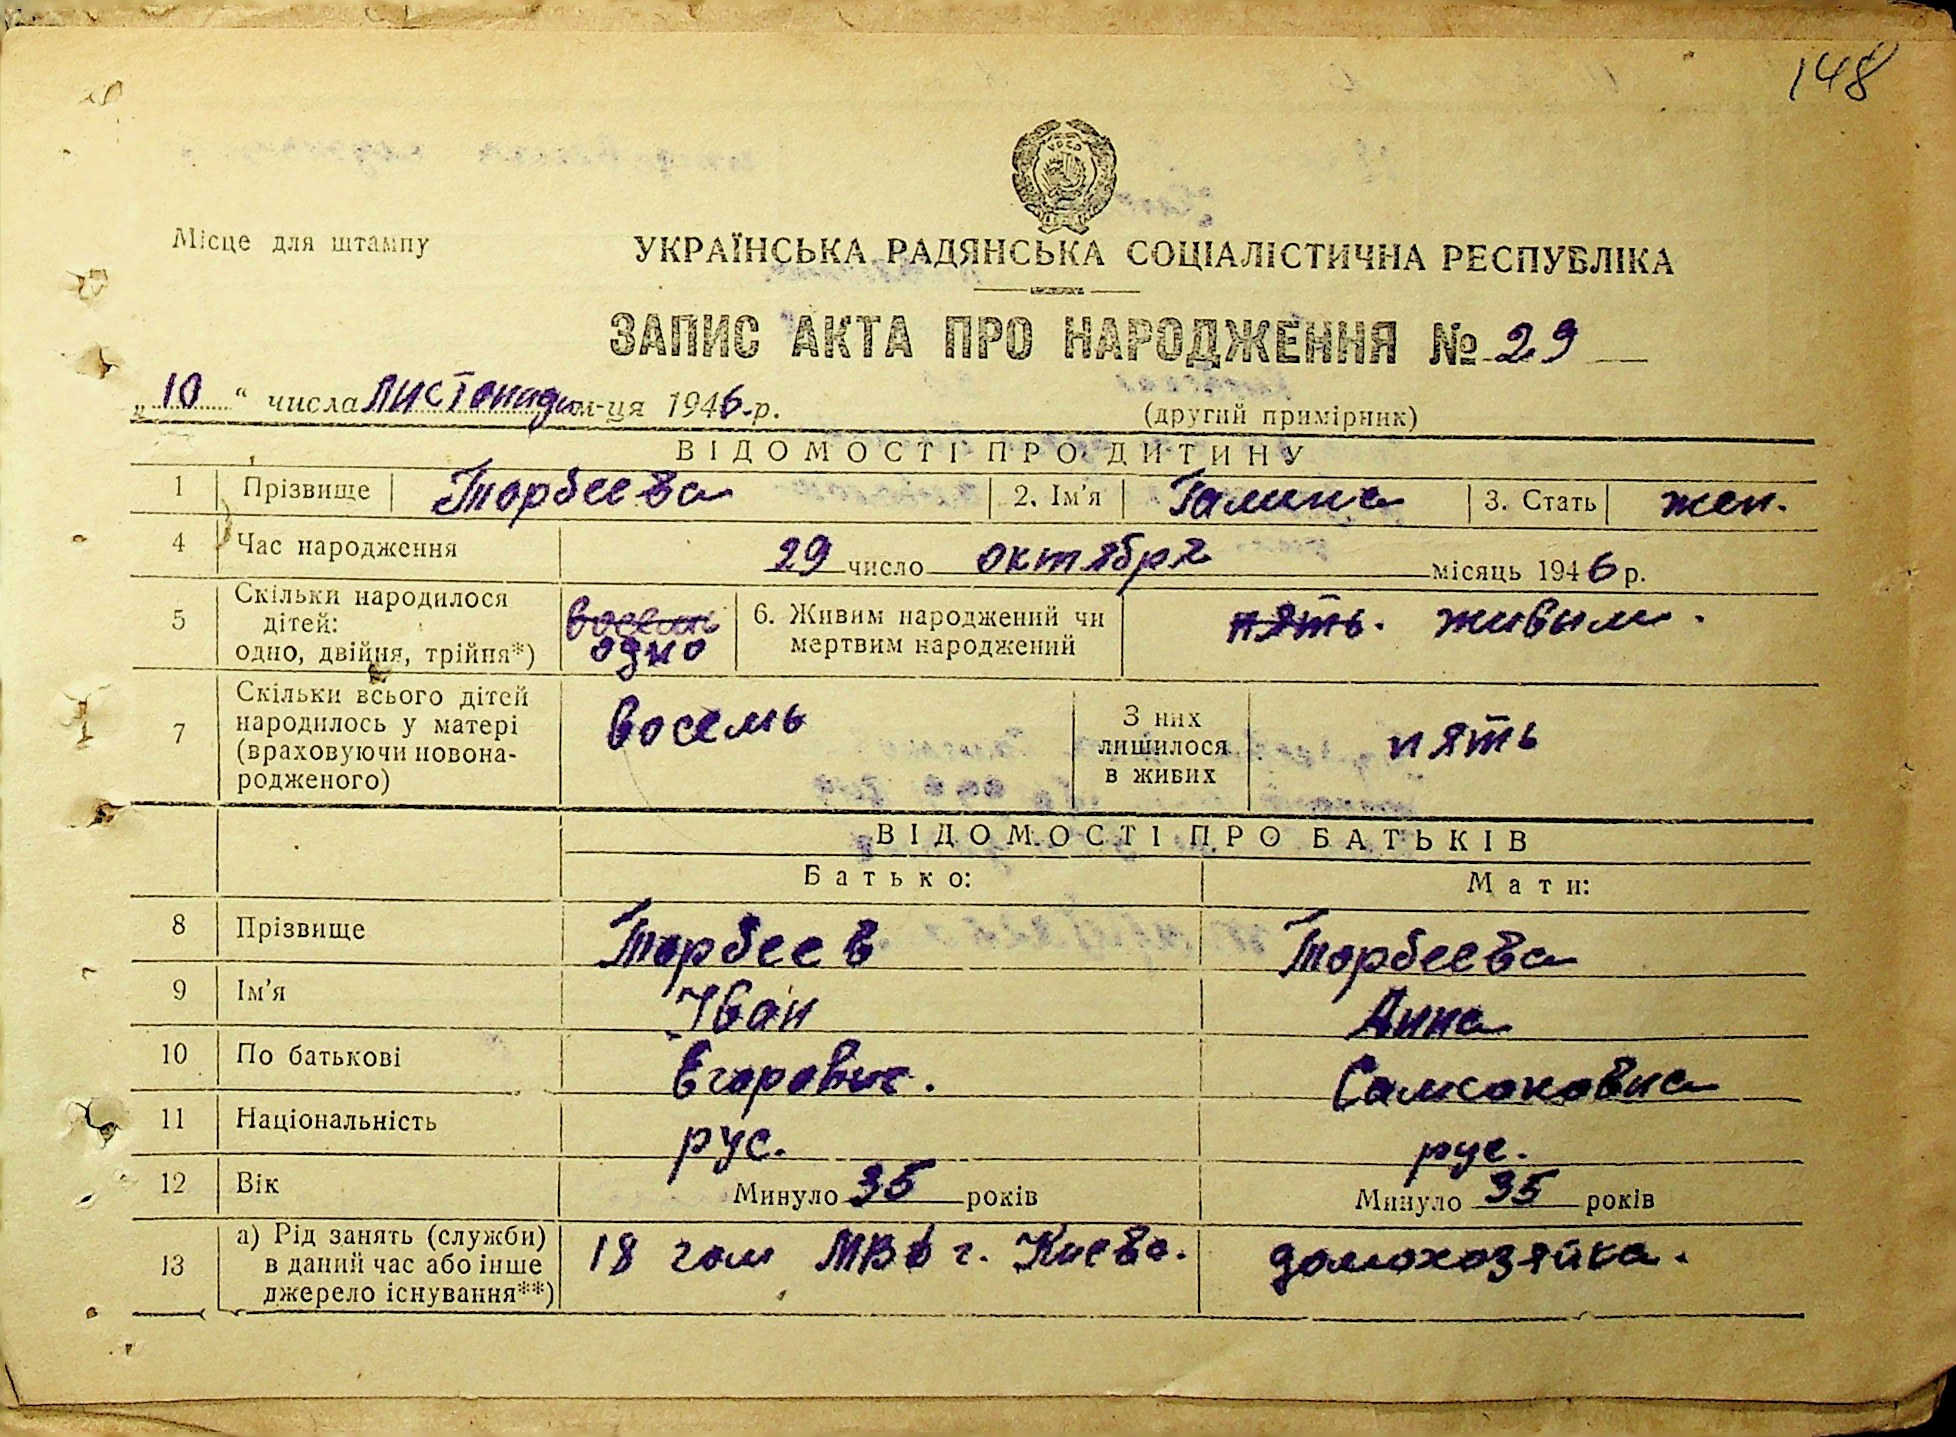 148
УРСР
Місце для штампу
УКРАЇНСЬКА РАДЯНСЬКА СОЦІАЛІСТИЧНА РЕСПУБЛІКА
ЗАПИС АКТА ПРО НАРОДЖЕННЯ № 29
„10“ числа листопада м-ця 1946 р.
(другий примірник)
ВІДОМОСТІ ПРО ДИТИНУ
1 Прізвище Торбеева 2. Ім'я Галина 3. Стать жен.
4 Час народження 29 число октября місяць 1946 р.
5 Скільки народилося дітей: одно, двійня, трійня*) восемь одно 6. Живим народжений чи мертвим народжений пять. живым.
7 Скільки всього дітей народилось у матері (враховуючи новонародженого) восемь З них лишилося в живих пять
ВІДОМОСТІ ПРО БАТЬКІВ
Батько: Мати:
8 Прізвище Торбеев Торбеева
9 Ім'я Іван Анна
10 По батькові Егорович. Самсоновна
11 Національність рус. рус.
12 Вік Минуло 35 років Минуло 35 років
13 а) Рід занять (служби) в даний час або інше джерело існування**) 18 МВД г. Киева. домохозяйка.